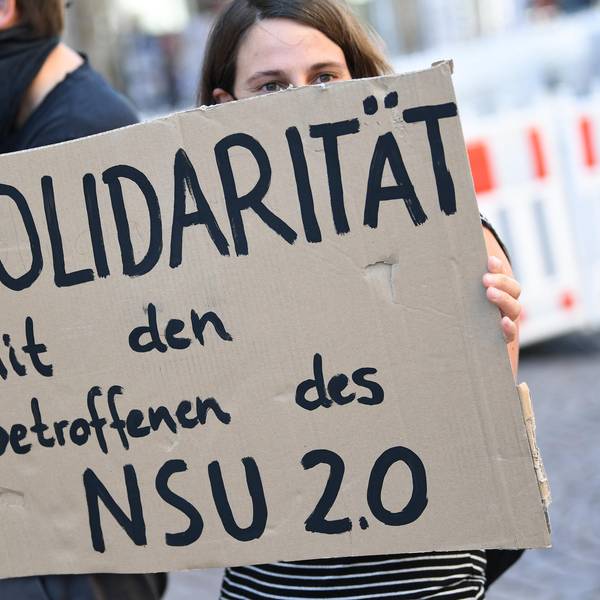 OLIDARITÄT
it den
betroffenen des
NSU 2.0